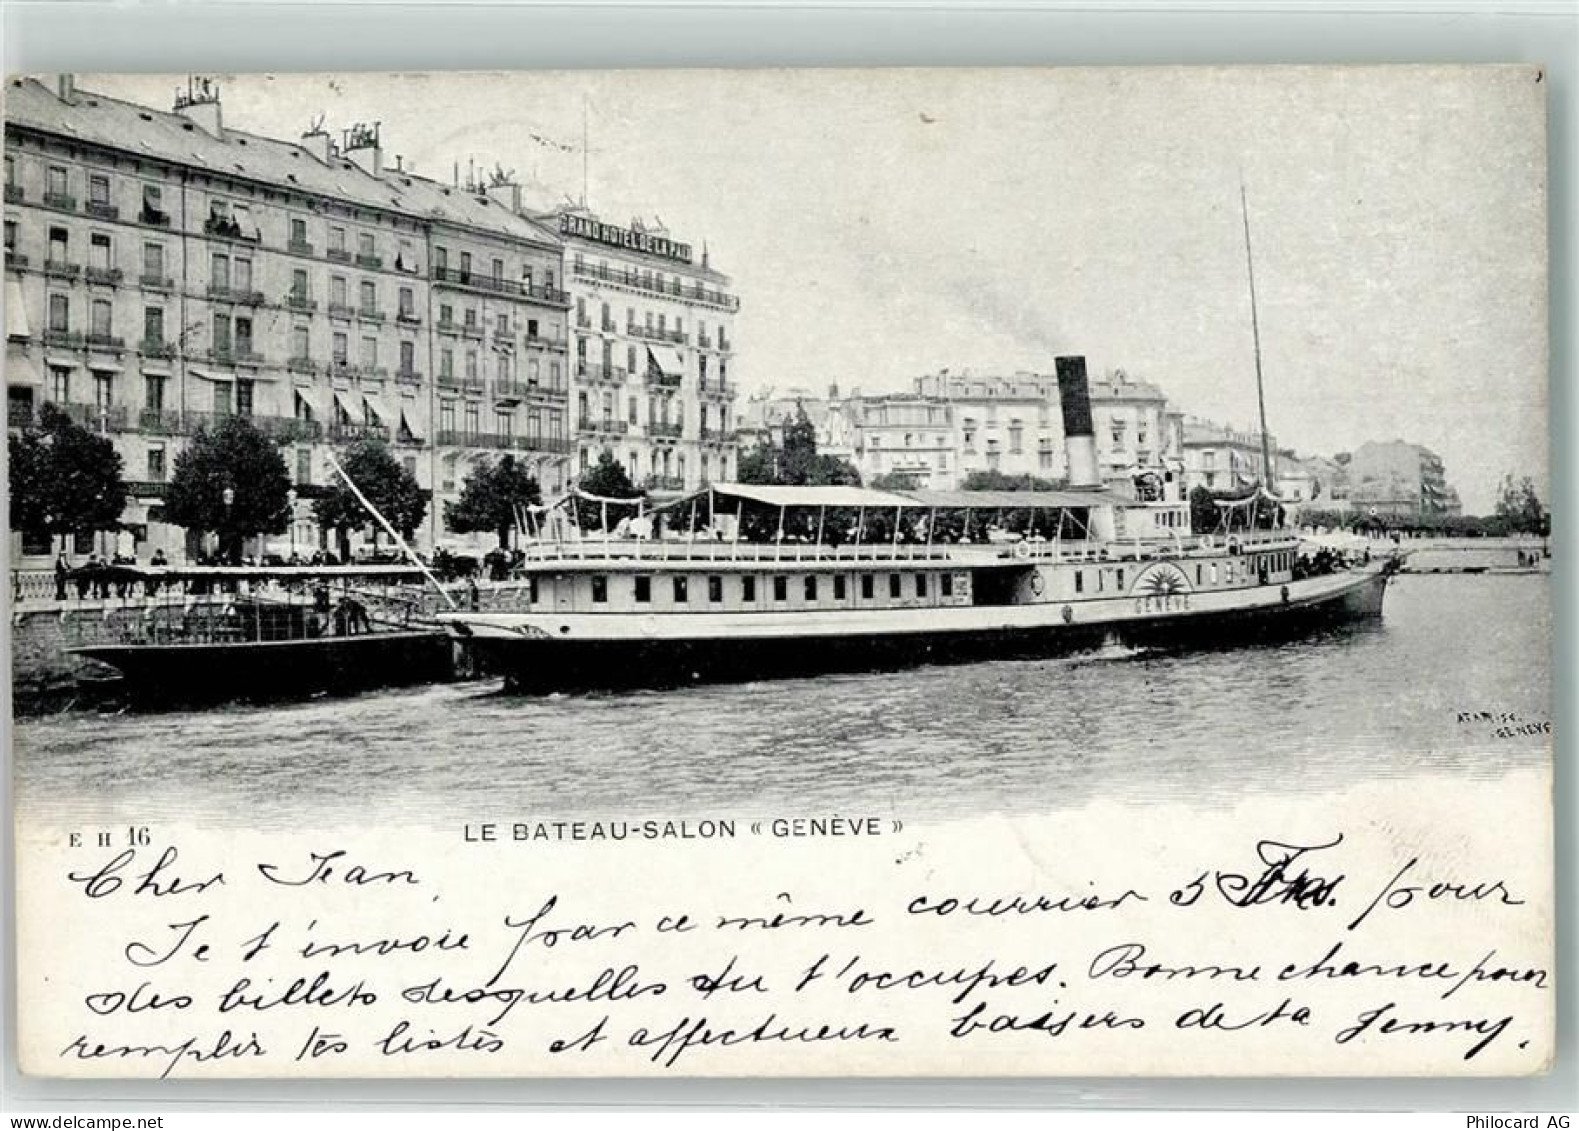 GRAND HOTEL DE LA PAIX
GENÈVE
ATAR. SC.
GENÈVE
E H 16
LE BATEAU-SALON « GENÈVE »
Cher Jean,
Je t'envoie par ce même courrier 5 Frs. pour
des billets desquelles tu t'occupes. Bonne chance pour
remplir tes listes et affectueux baisers de ta Jenny.
delcampe.net
Philocard AG